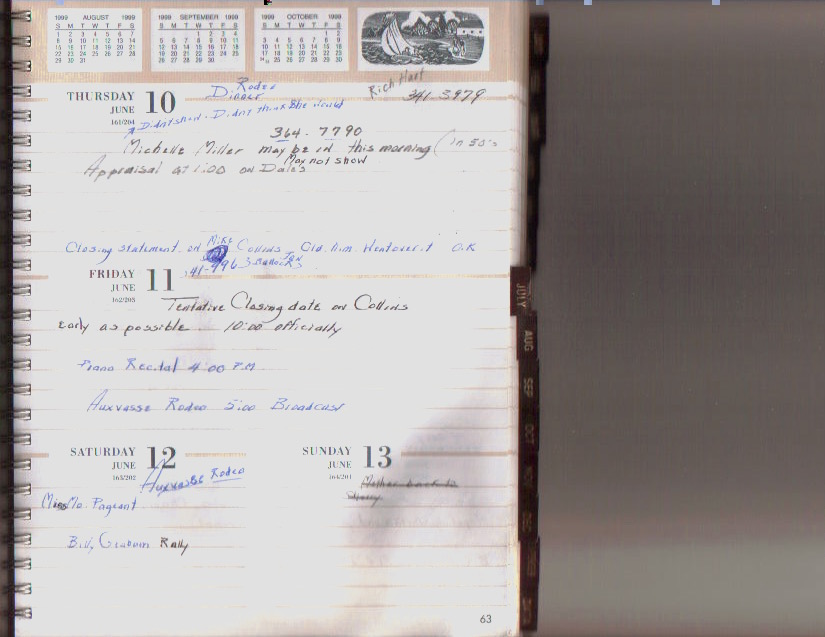 1999 AUGUST 1999
S M T W T F S
1 2 3 4 5 6 7
8 9 10 11 12 13 14
15 16 17 18 19 20 21
22 23 24 25 26 27 28
29 30 31
1999 SEPTEMBER 1999
S M T W T F S
1 2 3 4
5 6 7 8 9 10 11
12 13 14 15 16 17 18
19 20 21 22 23 24 25
26 27 28 29 30
1999 OCTOBER 1999
S M T W T F S
1 2
3 4 5 6 7 8 9
10 11 12 13 14 15 16
17 18 19 20 21 22 23
24 25 26 27 28 29 30
Rich Hart
341-3979
THURSDAY 10
JUNE
161/204
Rodeo
Dinner
Didn't show - Didn't think she would
364-7790
Michelle Miller may be in this morning (in 50's
May not show
Appraisal at 1:00 on Dale's
Closing statement on Mike Collins O.K
FRIDAY 11
JUNE
162/203
Tentative Closing date on Collins
Early as possible 10:00 officially
Piano Recital 4:00 P.M.
Auxvasse Rodeo 5:00 Broadcast
SATURDAY 12
JUNE
163/202
Auxvasse Rodeo
Miss Mo. Pageant
Billy Graham Rally
SUNDAY 13
JUNE
164/201
Mother back to
63
JULY
AUG
SEP
OCT
NOV
DEC